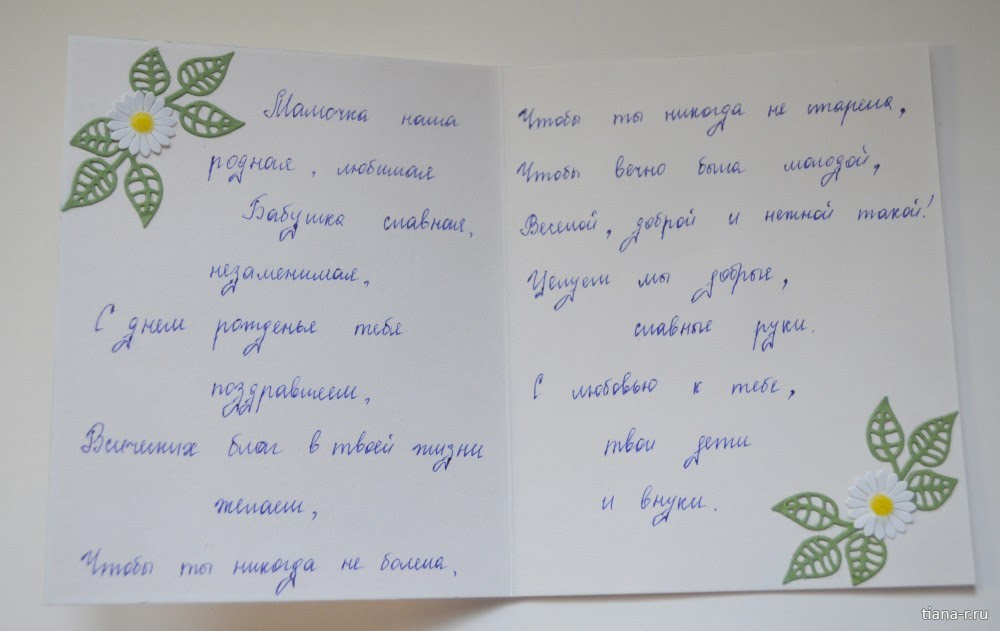 Мамочка наша
родная, любимая
Бабушка славная,
незаменимая,
С днем рожденья тебя
поздравляем,
Всяческих благ в твоей жизни
желаем,
Чтобы ты никогда не болела,
Чтобы ты никогда не старела,
Чтобы вечно была молодой,
Веселой, доброй и нежной такой!
Целуем мы добрые,
славные руки.
С любовью к тебе,
твои дети
и внуки.
tiana-r.ru